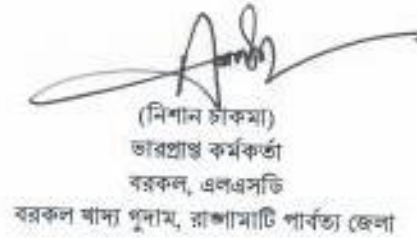 (নিশান চাকমা)
ভারপ্রাপ্ত কর্মকর্তা
বরকল, এলএসডি
বরকল খাদ্য গুদাম, রাঙ্গামাটি পার্বত্য জেলা